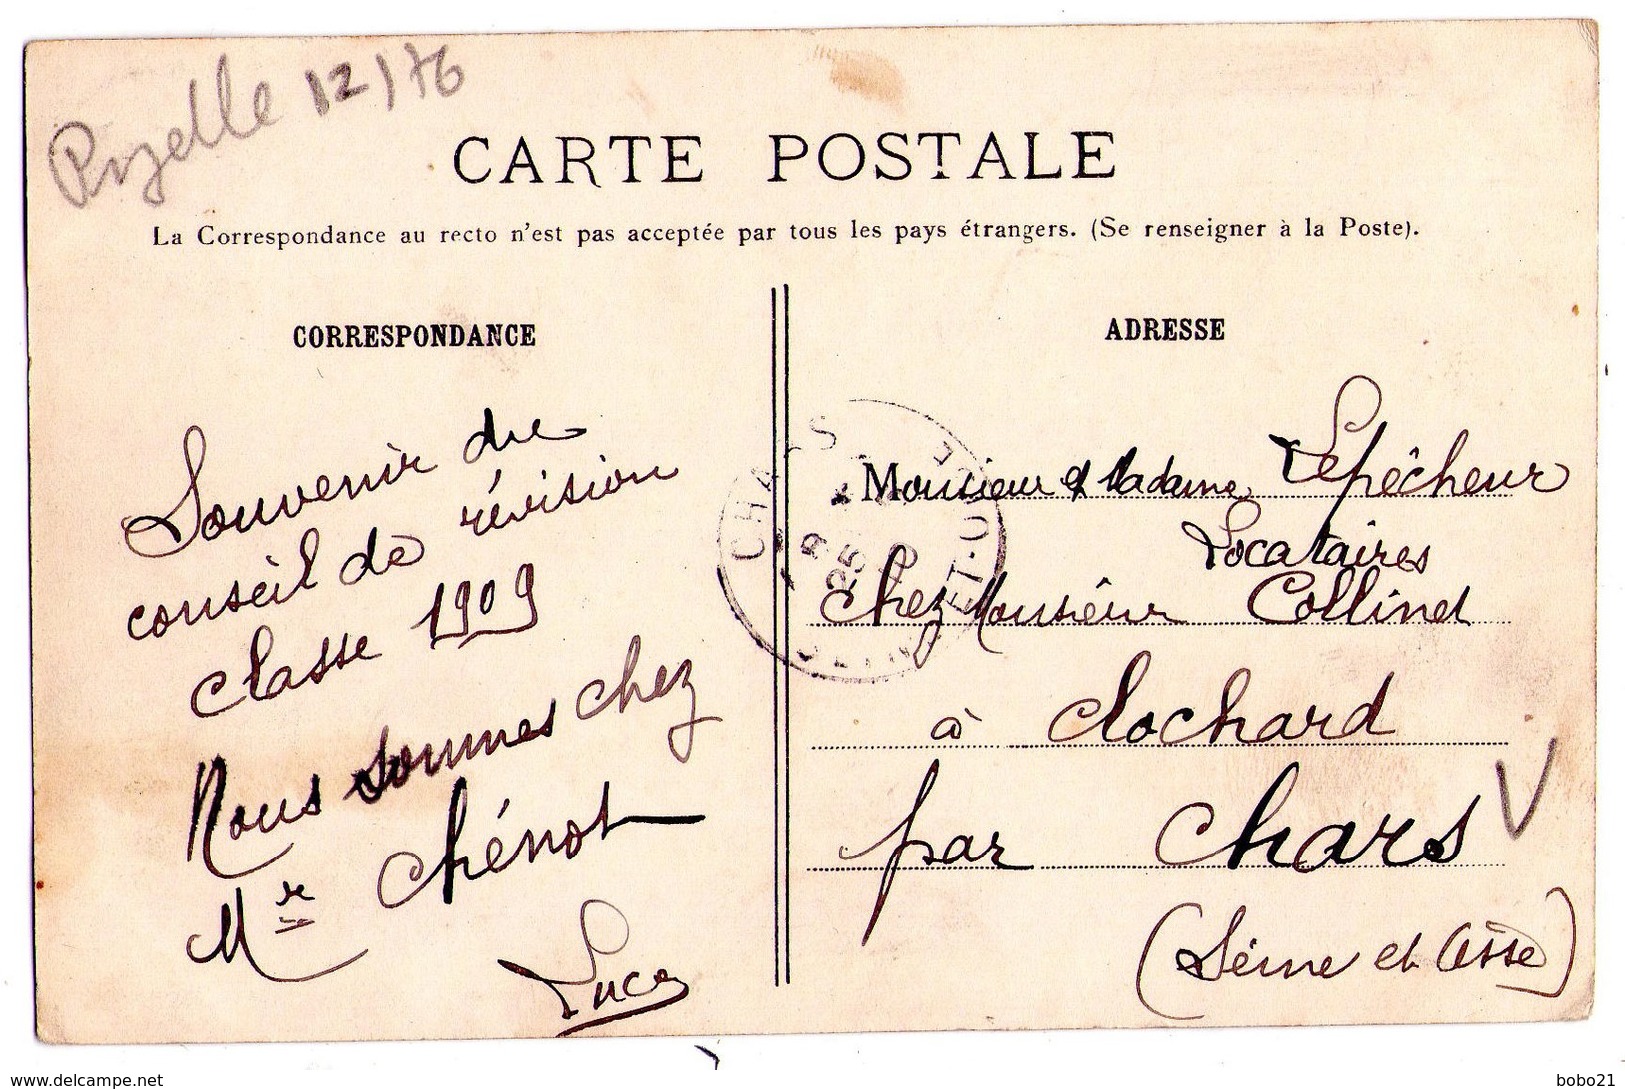 12/76
CARTE POSTALE
La Correspondance au recto n'est pas acceptée par tous les pays étrangers. (Se renseigner à la Poste).
CORRESPONDANCE
Souvenir du
conseil de révision
classe 1909
Nous sommes chez
Mr chénot
Luce
ADRESSE
Monsieur et Madame Lepêcheur
Locataires
chez Monsieur Collinet
à clochard
par chars
(Séine et Oise)
CHARS
25
SEINE-ET-OISE
www.delcampe.net
bobo21